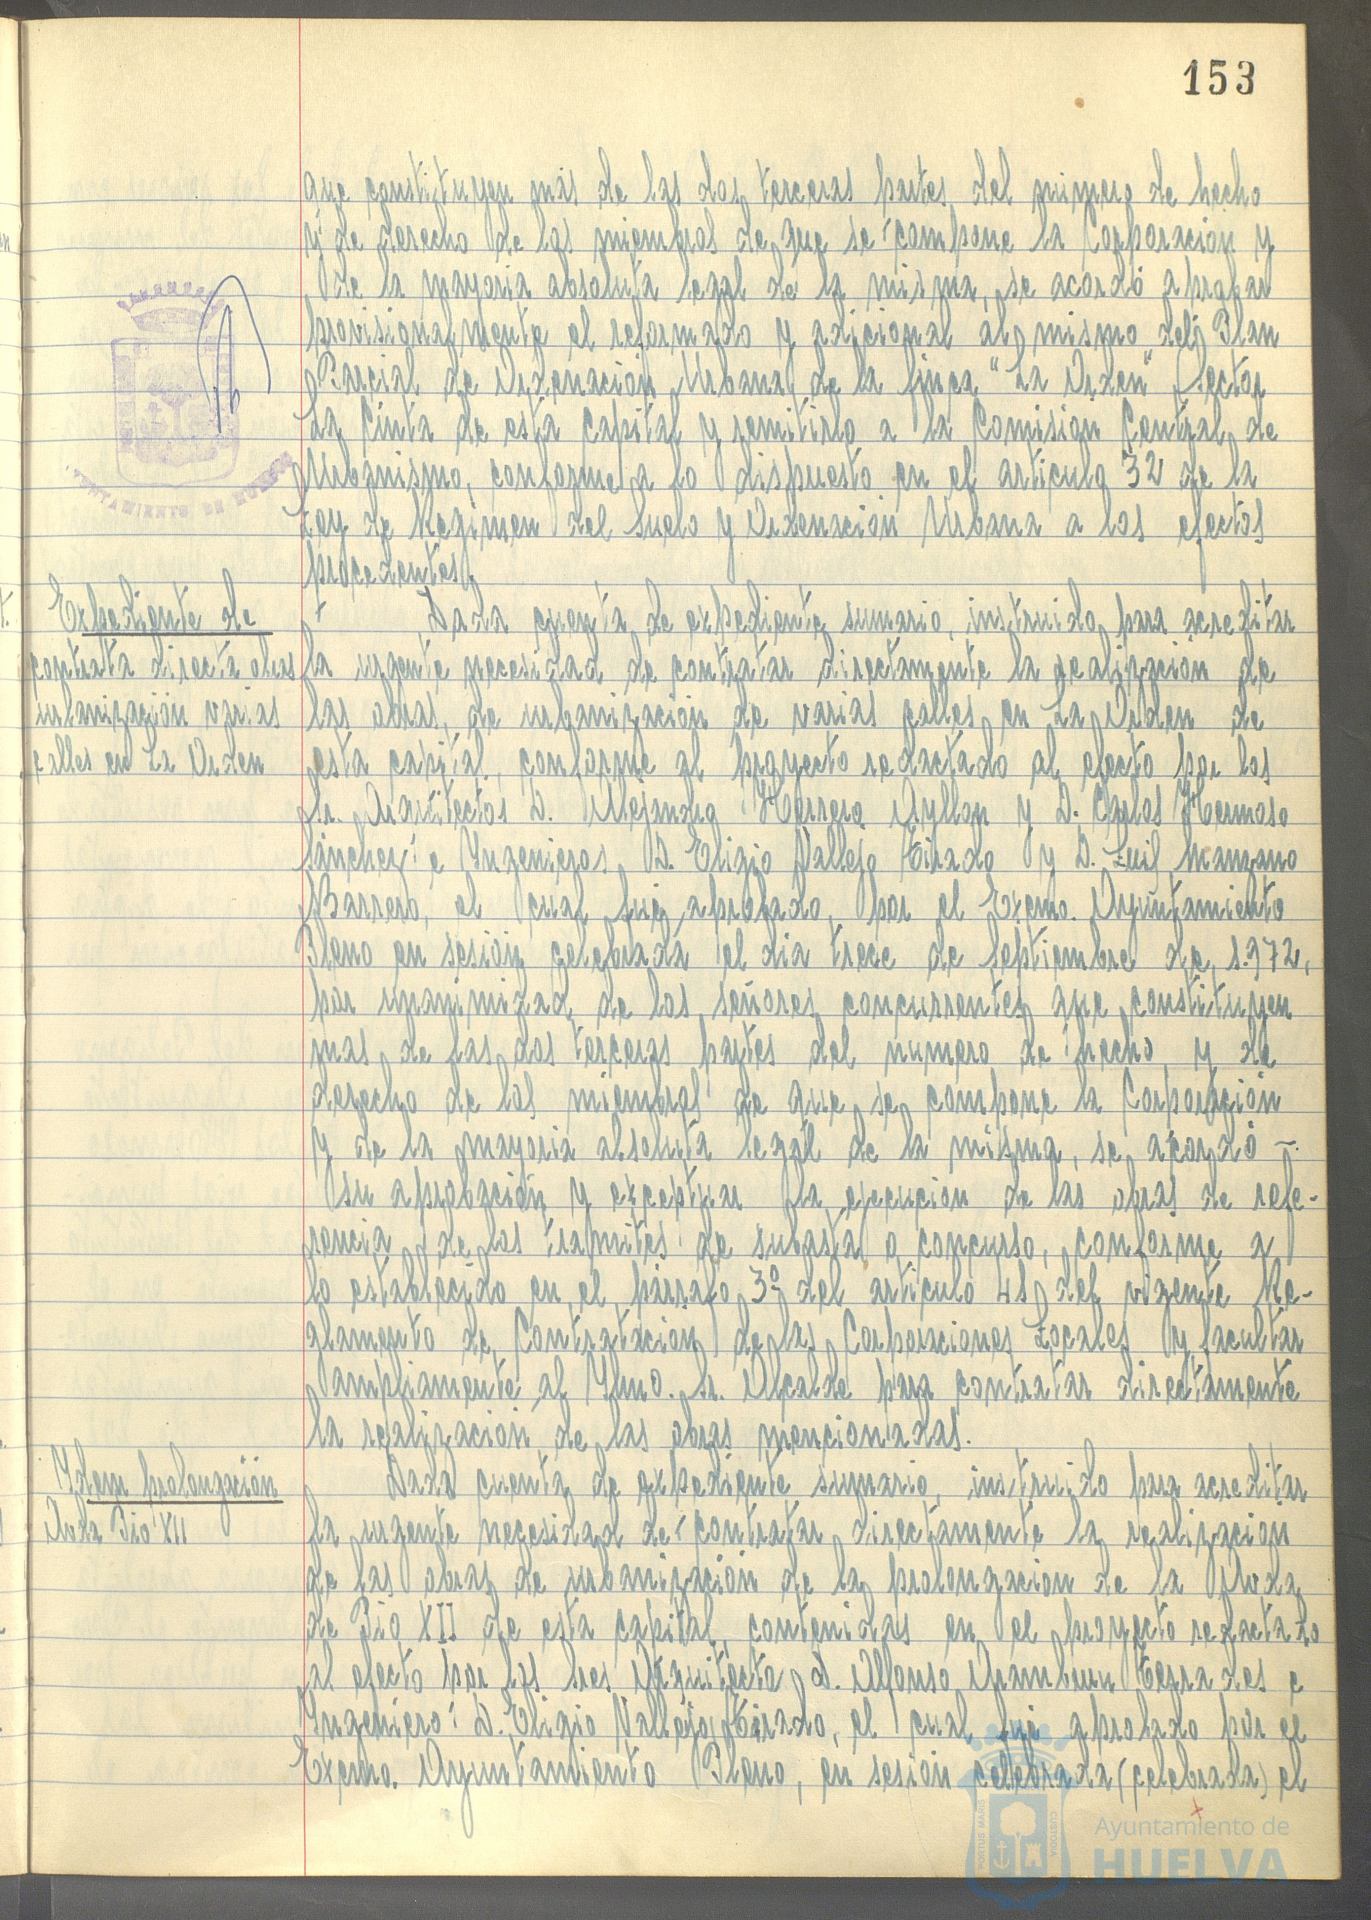 153
que constituyen más de las dos terceras partes del numero de hecho
y de derecho de los miembros de que se compone la Corporación y
de la mayoria absoluta legal de la misma, se acordó aprobar
provisionalmente el reformado y adicional al mismo del Plan
Parcial de Ordenación Urbana de la finca "La Orden" Sector
La Cinta de esta capital y remitirlo a la Comision Central de
Urbanismo, conforme a lo dispuesto en el articulo 32 de la
Ley de Regimen del Suelo y Ordenación Urbana a los efectos
procedentes.
Expediente de
contrata directa obras
urbanización varias
calles en La Orden
Dada cuenta de expediente sumario, instruido para acreditar
la urgente necesidad de contratar directamente la realización de
las obras de urbanización de varias calles en La Orden de
esta capital, conforme al proyecto redactado al efecto por los
Sr. Arquitectos D. Alejandro Herrero Ayllon y D. Carlos Hermoso
Sánchez e Ingenieros D. Eligio Vallejo Tirado y D. Luis Manzano
Barrero, el cual fué aprobado, por el Excmo. Ayuntamiento
Pleno en sesión celebrada el dia trece de Septiembre de 1.972,
por unanimidad de los señores concurrentes que constituyen
mas de las dos terceras partes del numero de hecho y de
derecho de los miembros de que se compone la Corporación
y de la mayoria absoluta legal de la misma, se acordó -
su aprobación y exceptuar la ejecucion de las obras de refe-
rencia de los tramites de subasta o concurso, conforme a
lo establecido en el párrafo 3º del articulo 41 del vigente Re-
glamento de Contratación de las Corporaciones Locales y facultar
ampliamente al Iltmo. Sr. Alcalde para contratar directamente
la realización de las obras mencionadas.
Idem prolongación
Avda Pio XII
Dada cuenta de expediente sumario, instruido para acreditar
la urgente necesidad de contratar directamente la realizacion
de las obras de urbanización de la prolongacion de la Avda
de Pio XII de esta capital, contenidas en el proyecto redactado
al efecto por los sres Arquitecto D. Alfonso Aramburu Terrades e
Ingeniero: D. Eligio Vallejo Tirado, el cual fué aprobado por el
Excmo. Ayuntamiento Pleno, en sesión celebrada (celebrada) el
AYUNTAMIENTO DE HUELVA
PORTUS MARIS
CUSTODIA
Ayuntamiento de
HUELVA